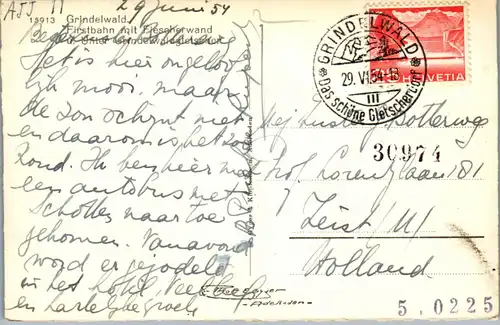 ATT 11 29 juni 54
15913 Grindelwald
Firstbahn mit Fiescherwand
Unter
Het is hier ongeloof
lijk mooi, maar
de zon schijnt niet
en daarom is het zo
koud. Ik ben hier met
een autobus met
Schotten naar toe
gekomen. Vanavond
word er gejodeld
in het hotel. Veel
en hartelijke groet
GRINDELWALD
29. VI. 54 - 18
III
das schöne Gletscherdorf
HELVETIA
Mej
30974
Prof. Lorentzlaan 181
Zeist /U/
Holland
5.0225